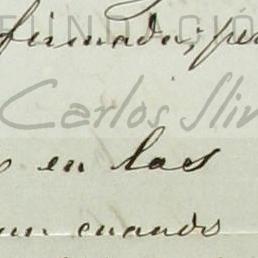 FUNDACIÓN
firmada; per
Carlos Slim
en las
cuando